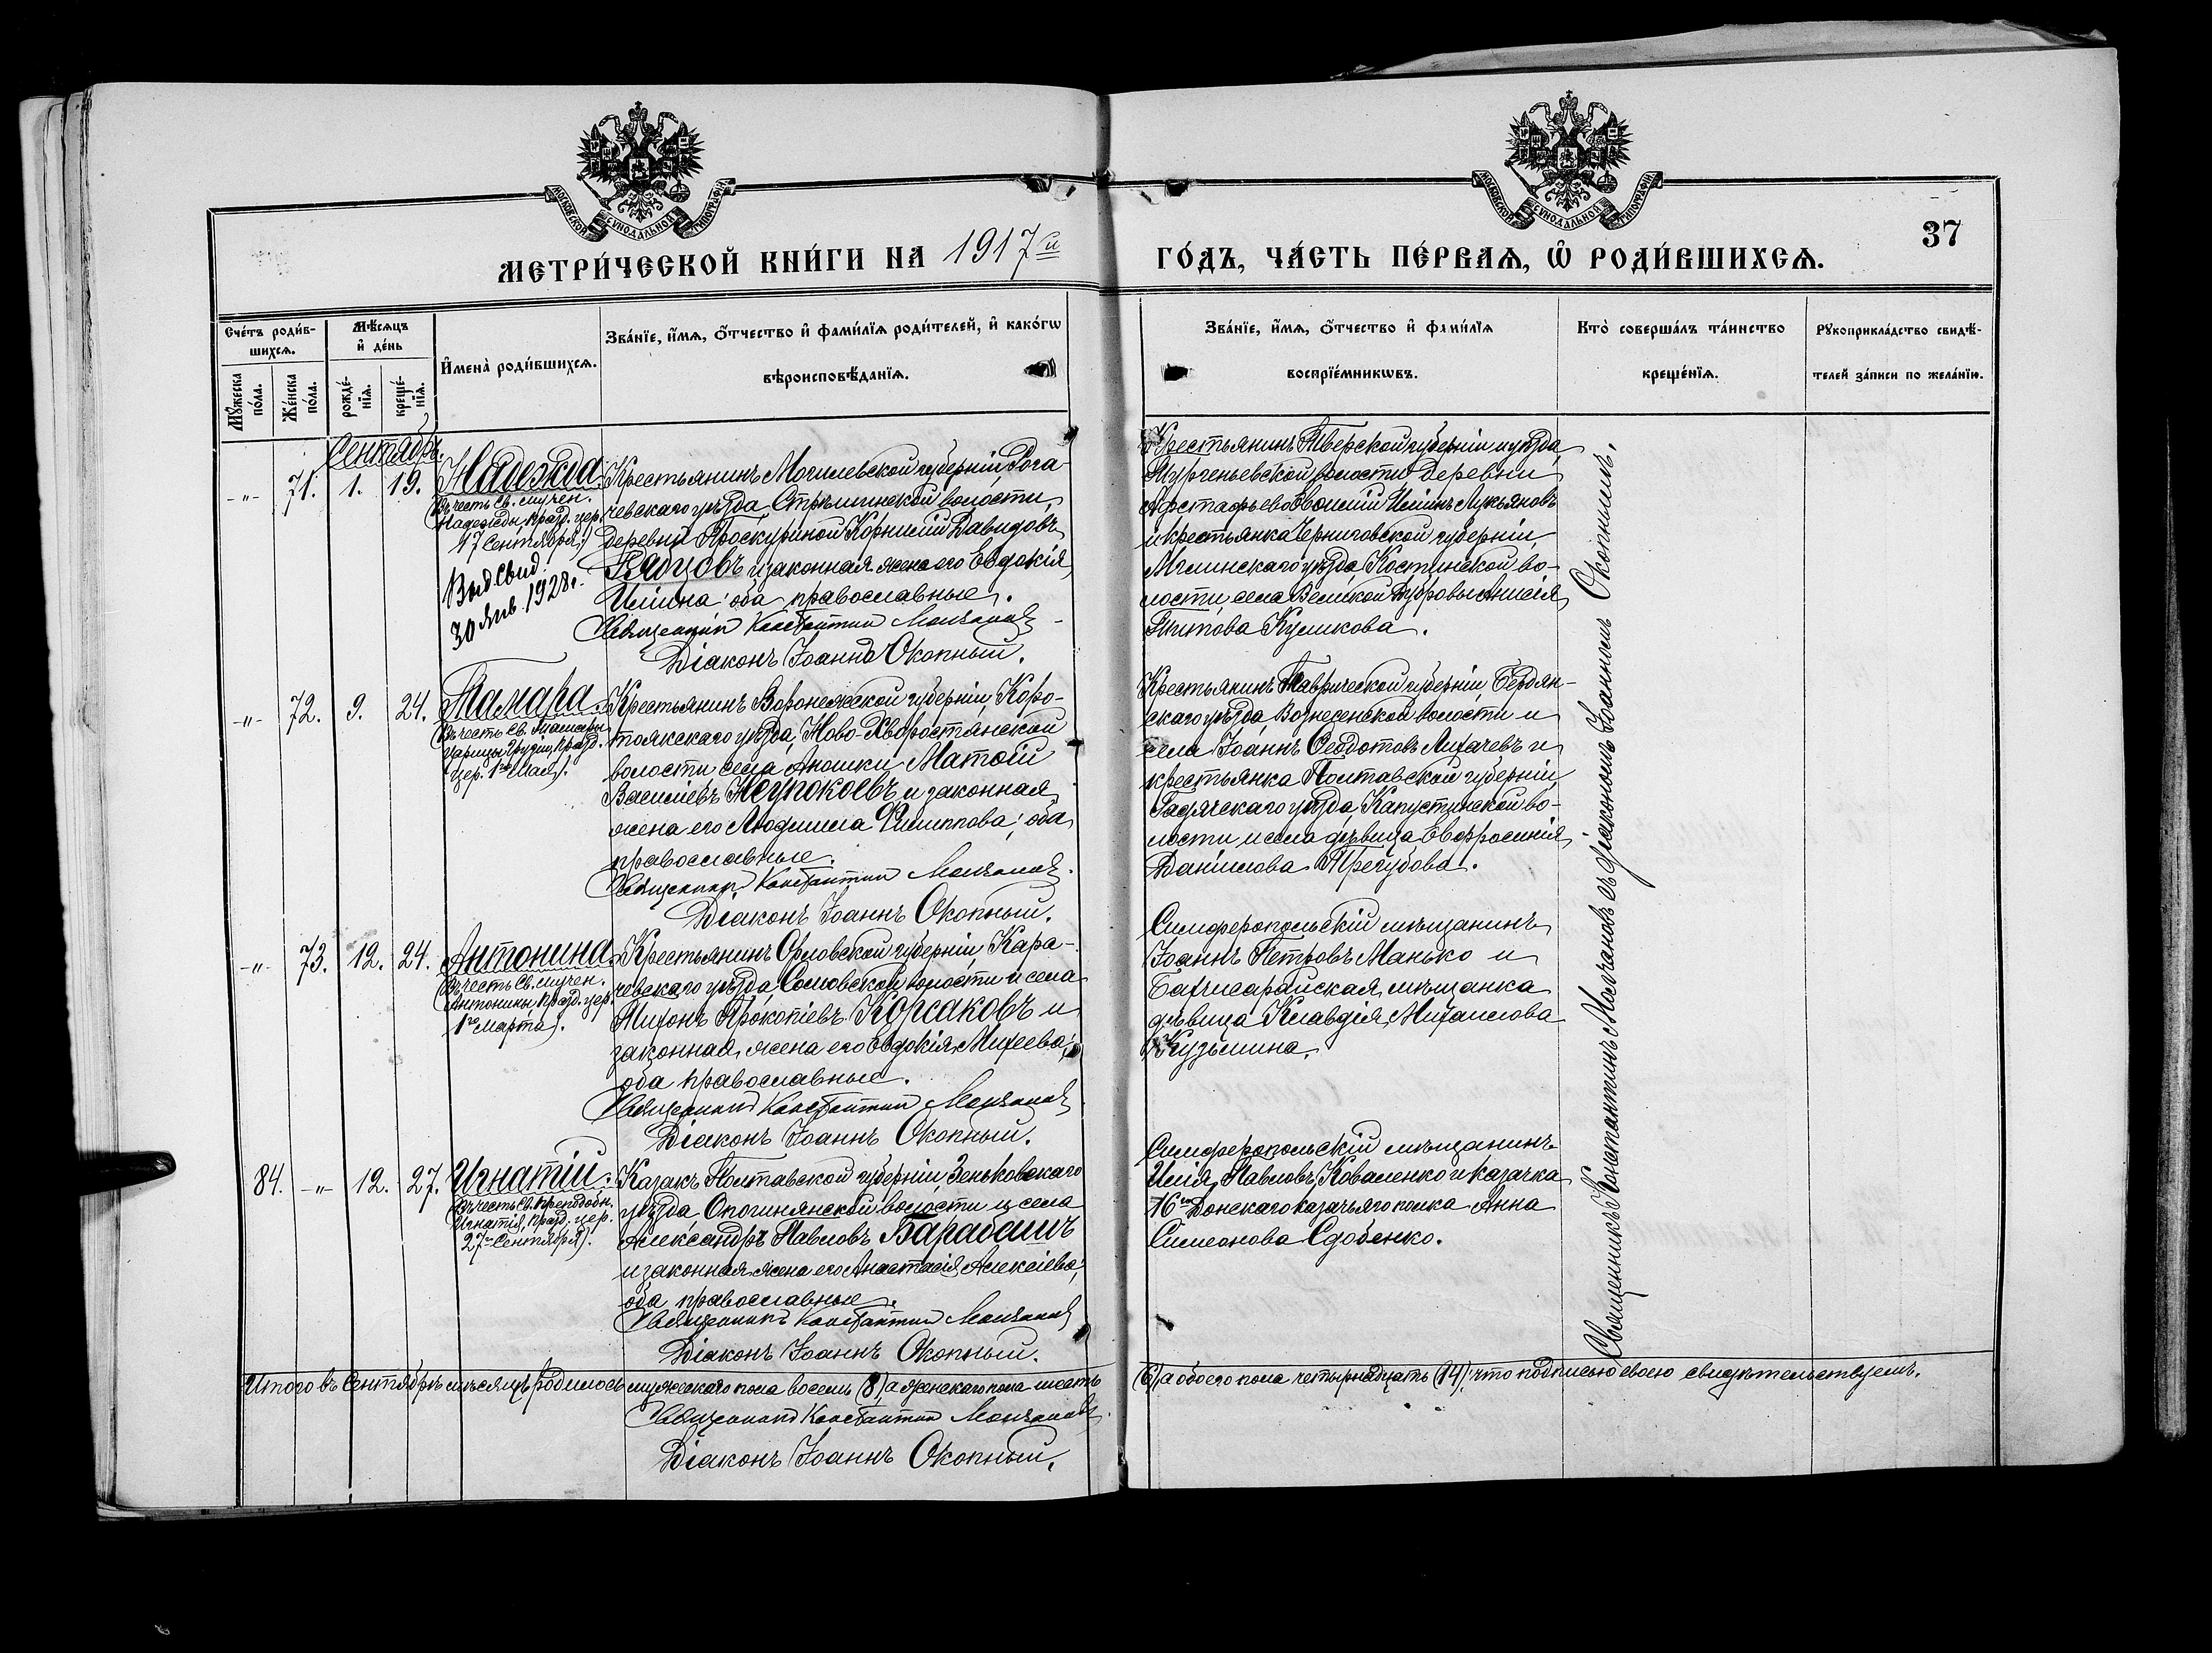 МОСКОВСКОЙ СѴНОДАЛЬНОЙ ТИПОГРАФІИ
МОСКОВСКОЙ СѴНОДАЛЬНОЙ ТИПОГРАФІИ
37
МЕТРИ́ЧЕСКОЙ КНИ́ГИ НА 1917й ГО́ДЪ, ЧА́СТЬ ПЕ́РВАѦ, Ѡ҆ РОДИ́ВШИХСѦ.
Сче́тъ роди́в-
шихсѧ.
Мꙋ́жеска по́ла.
Же́нска по́ла.
Мѣ́сѧцъ и҆ де́нь
рожде́-
нїѧ.
креще́-
нїѧ.
И҆мена̀ роди́вшихсѧ.
Зва́нїе, и҆́мѧ, ѻ҆́тчество и҆ фами́лїѧ роди́телей, и҆ како́гѡ
вѣроисповѣ́данїѧ.
Зва́нїе, и҆́мѧ, ѻ҆́тчество и҆ фами́лїѧ
воспрїе́мникѡвъ.
Кто̀ соверша́лъ та́инство
креще́нїѧ.
Рꙋкоприкла́дство свидѣ́-
телей за́писи по жела́нїю.
Сентябрь.
-"- 71. 1. 19. Надежда
(Въ честь Св. мучен.
Надежды, празд. цер.
17 Сентября.)
Выд свид.
30 янв. 1928 г.
Крестьянинъ Могилевской губерніи, Рога-
чевскаго уѣзда, Стрѣшинской волости,
деревни Проскуриной Корнилій Давидовъ
Рябцовъ и законная жена его Евдокія
Ильина; оба православные.
Священникъ Константинъ Молчановъ
Діаконъ Іоаннъ Окопный.
Крестьянинъ Тверской губерніи и уѣзда,
волости деревни
Ильинъ Лукьяновъ
и крестьянка Черниговской губерніи,
Мглинскаго уѣзда, Костинской во-
лости, села Великой Дубровы Анисія
Титова Куликова.
-"- 72. 9. 24. Тамара.
(Въ честь Св. Тамары
Царицы Грузіи, празд.
цер. 1го Мая).
Крестьянинъ Воронежской губерніи, Коро-
тоякскаго уѣзда, Ново-Хворостянской
волости, села Аношки Матѳій
Василіевъ Неупокоевъ и законная
жена его Людмила Филиппова; оба
православные.
Священникъ Константинъ Молчановъ.
Діаконъ Іоаннъ Окопный.
Крестьянинъ Таврической губерніи Бердян-
скаго уѣзда, Вознесенской волости и
села Іоаннъ Ѳедотовъ Лихачевъ и
крестьянка Полтавской губерніи,
Гадячскаго уѣзда, Капустинской во-
лости и села дѣвица Евфросинія
Даніилова Трегубова.
-"- 73. 12. 24. Антонина.
(Въ честь Св. мучен.
Антонины, празд. цер.
1го Марта).
Крестьянинъ Орловской губерніи, Кара-
чевскаго уѣзда, волости и села
Прокопіевъ Корсаковъ и
законная жена его Евдокія Михеева;
оба православные.
Священникъ Константинъ Молчановъ
Діаконъ Іоаннъ Окопный.
Симферопольскій мѣщанинъ
Іоаннъ Петровъ Манько и
Бахчисарайская мѣщанка
дѣвица Клавдія Михаилова
Кузьмина.
84. -"- 12. 27. Игнатій.
(Въ честь Св. Преподобн.
Игнатія, празд. цер.
27го Сентября).
Казакъ Полтавской губерніи, Зеньковскаго
уѣзда Опошнянской волости и села
Александръ Павловъ Барабашъ
и законная жена его Анастасія Алексіева;
оба православные.
Священникъ Константинъ Молчановъ
Діаконъ Іоаннъ Окопный.
Симферопольскій мѣщанинъ
Илія Павловъ Коваленко и казачка
16го Донскаго казачьяго полка Анна
Симеонова Сдобенко.
Священникъ Константинъ Молчановъ съ діакономъ Іоанномъ Окопнымъ.
Итого въ Сентябрѣ мѣсяцѣ родилось мужескаго пола восемь (8), а женскаго пола шесть (6), а обоего пола четырнадцать (14), что подписью своею свидѣтельствуемъ.
Священникъ Константинъ Молчановъ.
Діаконъ Іоаннъ Окопный.